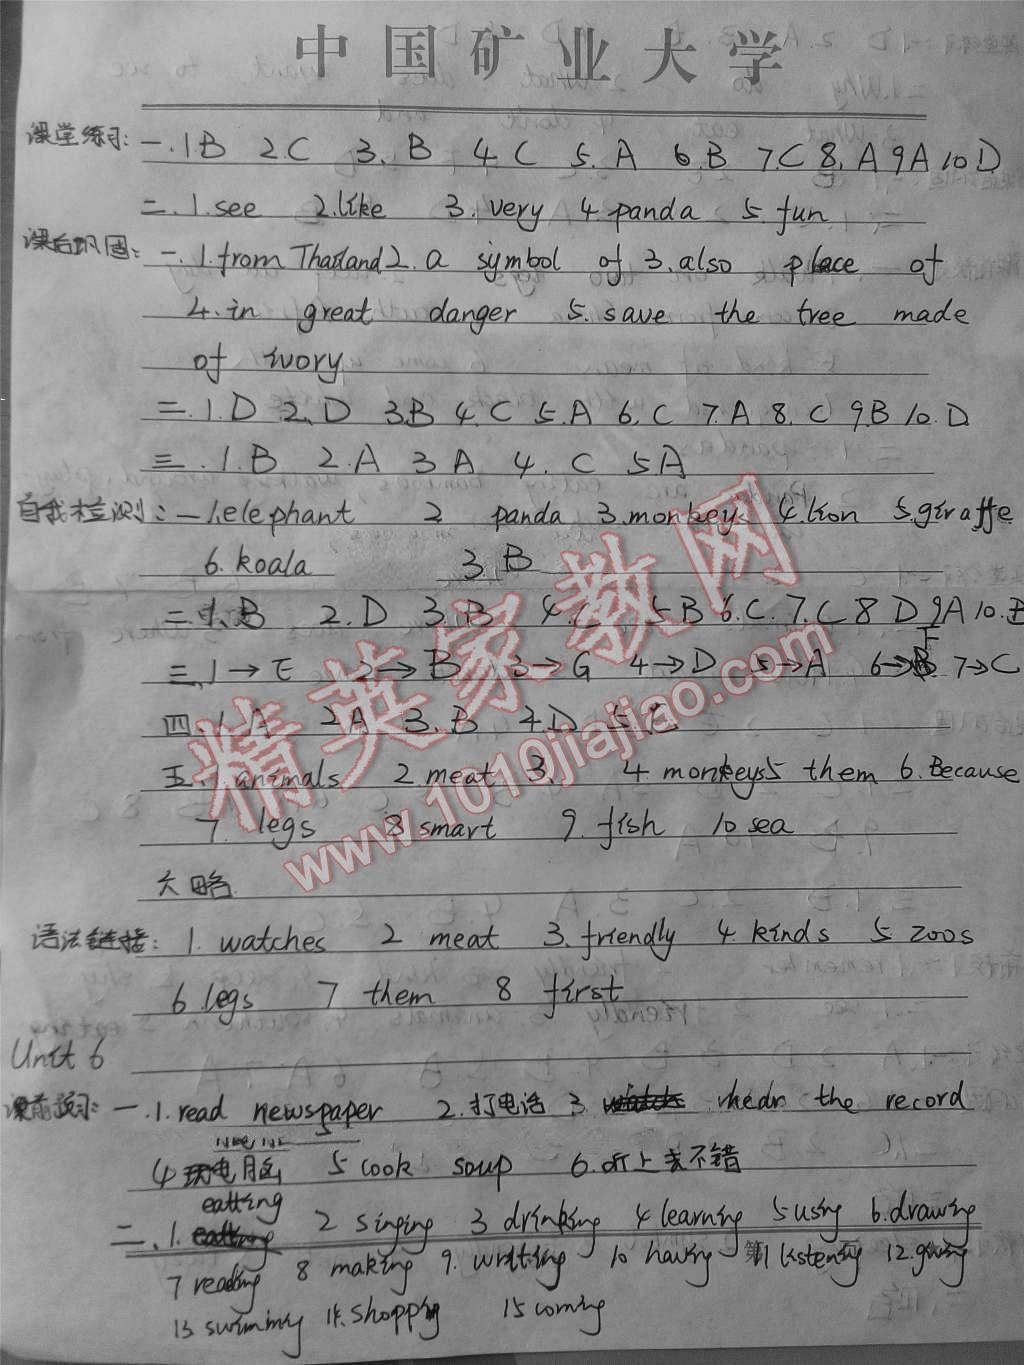 中国矿业大学
课堂练习: 一.1B 2.C 3. B 4.C 5.A 6.B 7.C 8.A 9A 10.D
二.1.see 2.like 3.very 4 panda 5.fun
课后巩固: 一.1.from Thailand 2.a symbol of 3.also place of
4.in great danger 5.save the tree made
of ivory
二.1.D 2.D 3.B 4.C 5.A 6.C 7.A 8.C 9.B 10.D
三.1.B 2.A 3 A 4. C 5A
自我检测: 一1.elephant 2 panda 3.monkeys 4.lion 5.giraffe
6.koala 3.B
二.1.B 2.D 3.B 4. 5B 6.C.7.C 8 D 9A 10.B
三.1→E 2→B 3→G 4→D 5→A 6→F 7→C
四.1.A 2A 3.B 4D 5.C
五.1.animals 2 meat 3. 4 monkeys 5 them 6.Because
7. legs 8 smart 9.fish 10 sea
六略
语法链接: 1. watches 2 meat 3.friendly 4.kinds 5 zoos
6.legs 7 them 8 first
Unit 6
课前预习: 一.1.read newspaper 2.打电话 3. hedn the record
4 电脑 5 cook soup 6.听上去不错
二.1.eatting 2 singing 3 drinking 4 learning 5 using 6.drawing
7 reading 8 making 9. writting 10 having 11 listening 12.giving
13 swimming 14.shopping 15 coming
第